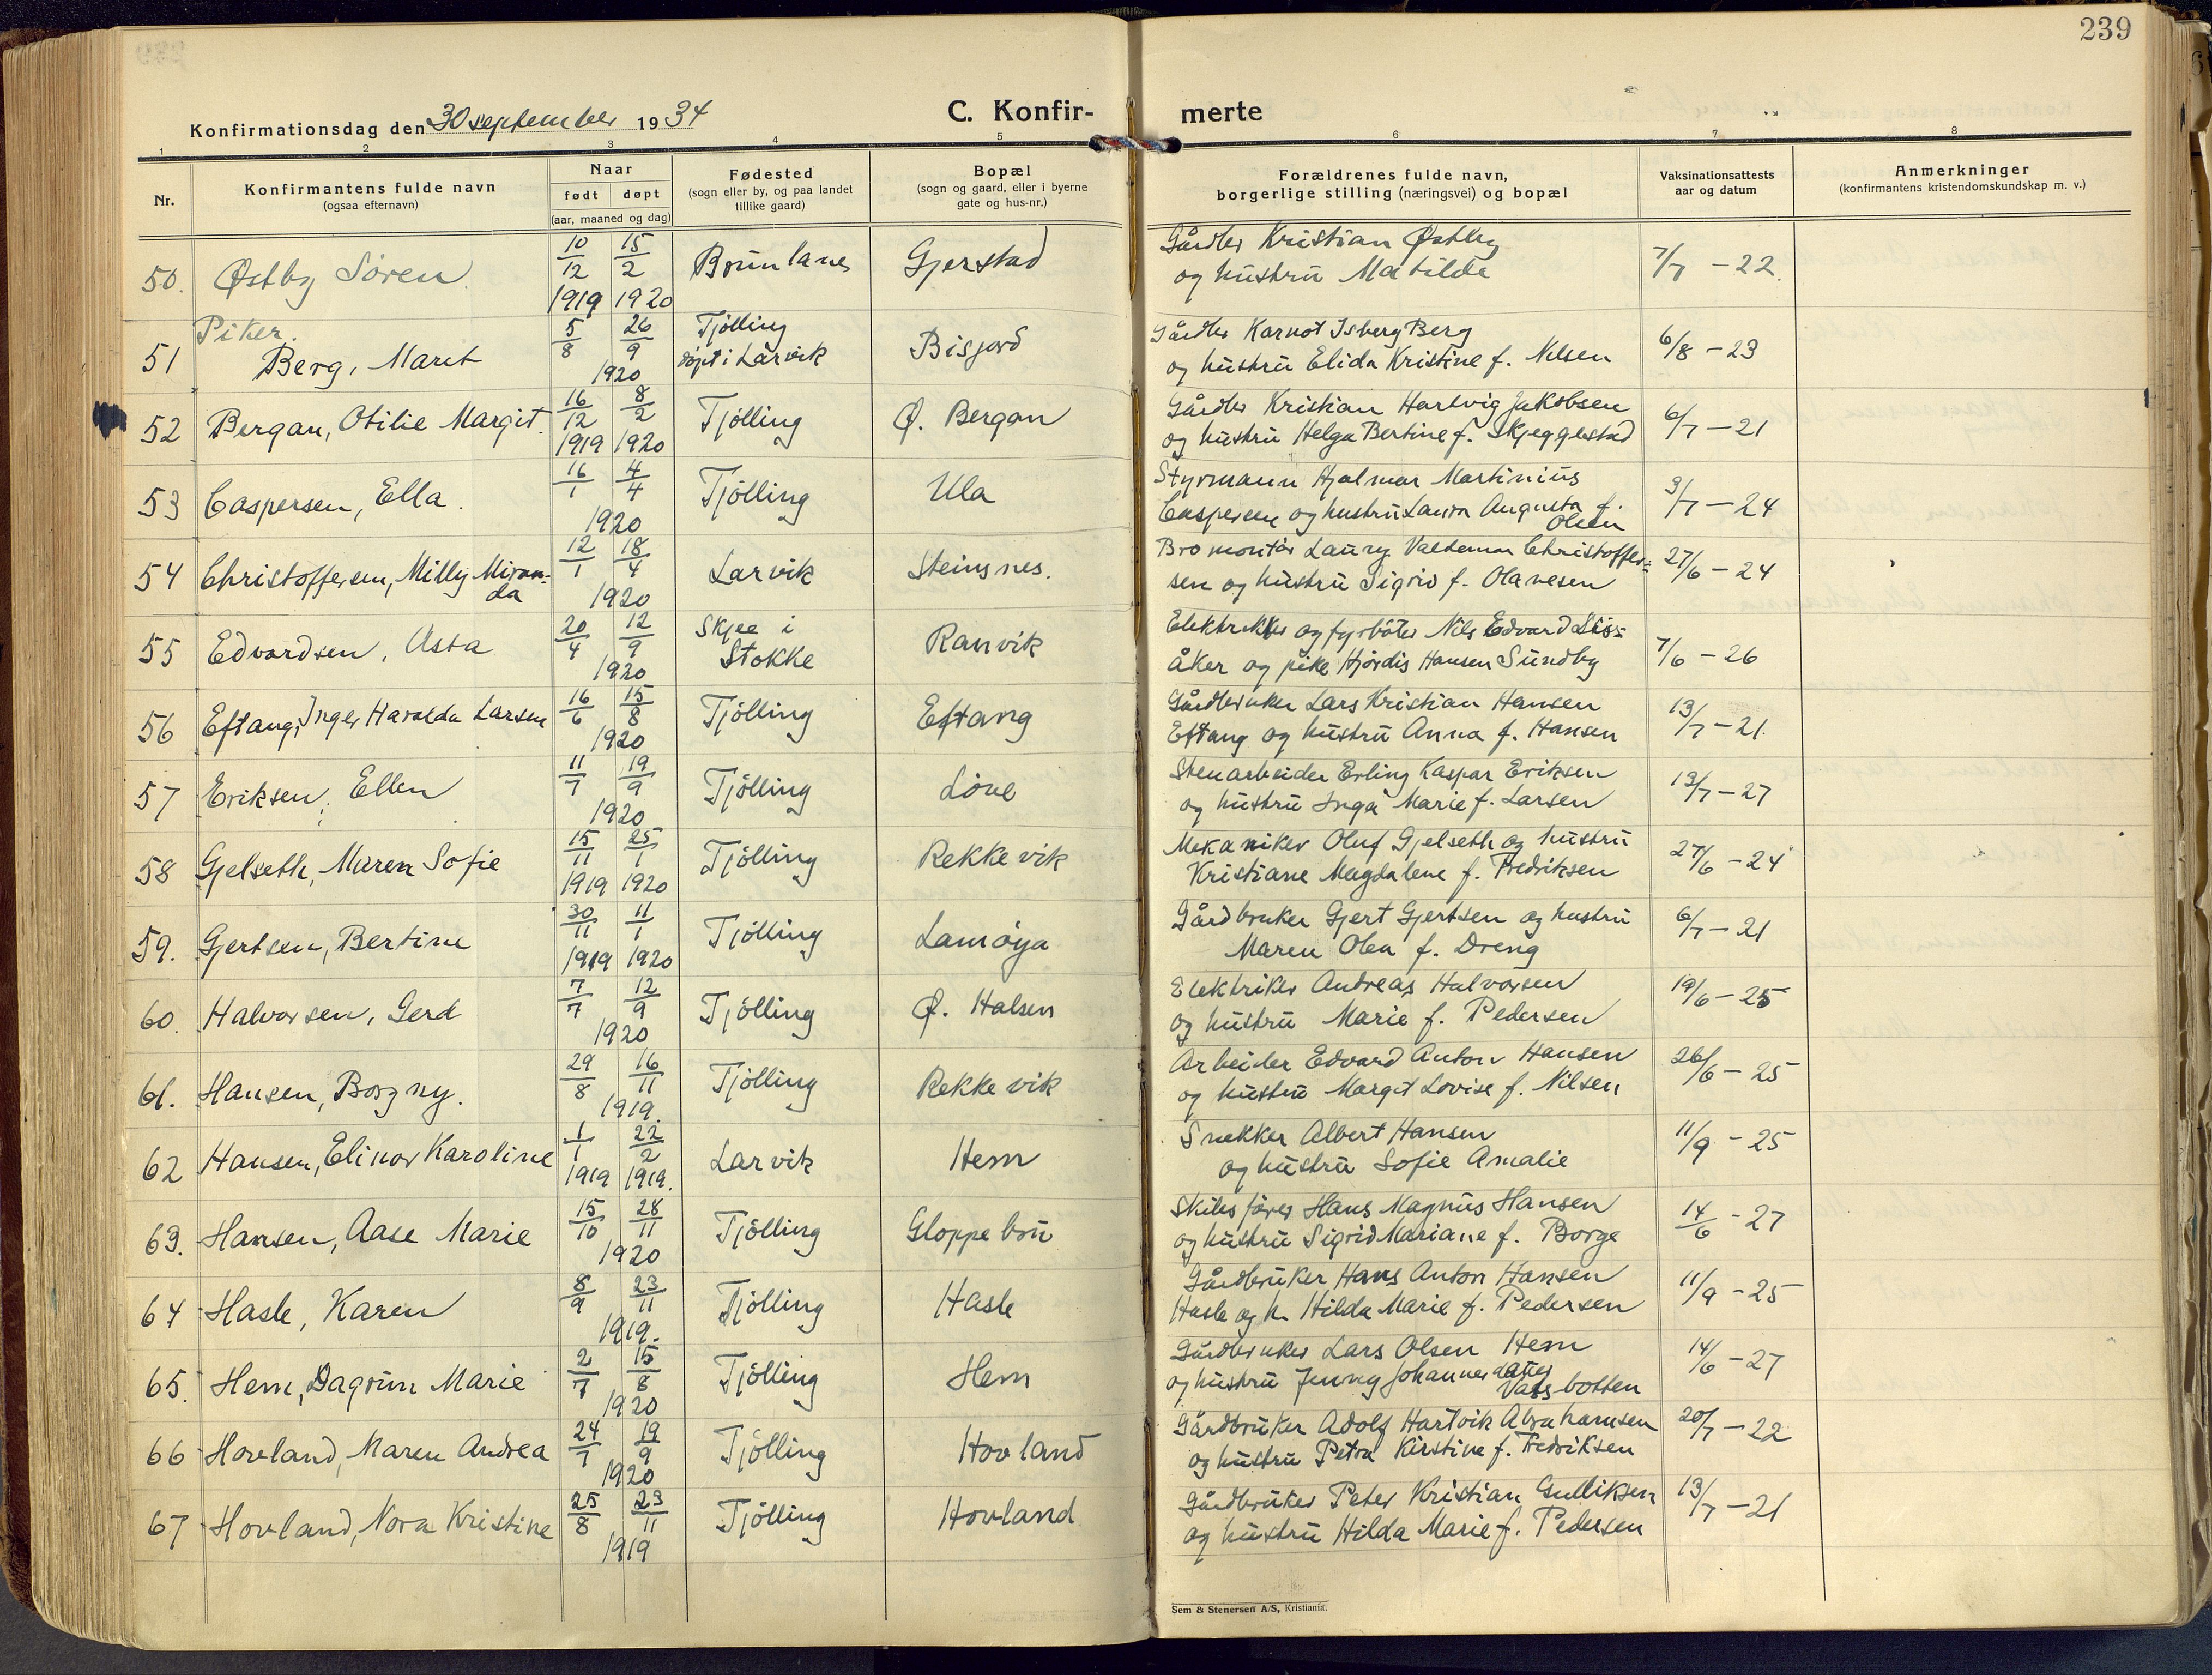 239
Konfirmationsdag den 30 september 1934
C. Konfir-
merte
1 2 3 4 5 6 7 8
Nr.
Konfirmantens fulde navn
(ogsaa efternavn)
Naar
født døpt
(aar, maaned og dag)
Fødested
(sogn eller by, og paa landet
tillike gaard)
Bopæl
(sogn og gaard, eller i byerne
gate og hus-nr.)
Forældrenes fulde navn,
borgerlige stilling (næringsvei) og bopæl
Vaksinationsattests
aar og datum
Anmerkninger
(konfirmantens kristendomskundskap m. v.)
50. Østby Sören 10/12 1919 15/2 1920 Brunlanes Gjerstad
Gårdbr Kristian Østby
og hustru Matilde
7/7 - 22
Piker.
51 Berg, Marit 5/8 26/9 1920
Tjölling
döpt i Larvik
Bisjord
Gårdbr Karnot Isberg Berg
og hustru Elida Kristine f. Nilsen
6/8 - 23
52 Bergan, Otilie Margit 16/12 1919 8/2 1920 Tjölling Ø. Bergan
Gårdbr Kristian Hartvig Jakobsen
og hustru Helga Bertine f. Skjeggestad
6/7 - 21
53 Caspersen, Ella 16/1 4/4 1920 Tjölling Ula
Styrmann Hjalmar Martinius
Caspersen og hustru Laura Augusta f.
Olsen
3/7 - 24
54 Christoffersen, Milly Miran-
da
12/1 18/4 1920 Larvik Steinsnes.
Bromontör Laury Valdemar Christoffer=
sen og hustru Sigrid f. Olavesen
27/6 - 24
55 Edvardsen, Asta 20/4 12/9 1920
Skjee i
Stokke
Ranvik
Elektriker og fyrböter Nils Edvard Lis=
åker og pike Hjördis Hansen Sundby
7/6 - 26
56 Eftang, Inger Haralda Larsen 16/6 15/8 1920 Tjölling Eftang
Gårdbruker Lars Kristian Hansen
Eftang og hustru Anna f. Hansen
13/7 - 21.
57 Eriksen, Ellen 11/7 19/9 1920 Tjölling Löve
Stenarbeider Erling Kaspar Eriksen
og hustru Inga Marie f. Larsen
13/7 - 27
58 Gjelseth, Maren Sofie 15/11 1919 25/1 1920 Tjölling Rekkevik
Mekaniker Oluf Gjelseth og hustru
Kristiane Magdalene f. Fredriksen
27/6 - 24
59. Gjertsen, Bertine 30/11 1919 11/1 1920 Tjölling Lamöya
Gårdbruker Gjert Gjertsen og hustru
Maren Olea f. Dreng
6/7 - 21
60. Halvorsen, Gerd 7/7 12/9 1920 Tjölling Ø. Halsen
Elektriker Andreas Halvorsen
og hustru Marie f. Pedersen
19/6 - 25
61. Hansen, Borgny. 29/8 16/11 1919. Tjölling Rekkevik
Arbeider Edvard Anton Hansen
og hustru Margit Lovise f. Nilsen
26/6 - 25
62 Hansen, Elinor Karoline 1/1 1919 22/2 1919. Larvik Hem
Snekker Albert Hansen
og hustru Sofie Amalie
11/9 - 25
63. Hansen, Aase Marie 15/10 28/11 1920 Tjölling Gloppebru
Skibsförer Hans Magnus Hansen
og hustru Sigrid Mariane f. Borge
14/6 - 27
64 Hasle, Karen 8/9 23/11 1919. Tjölling Hasle
Gårdbruker Hans Anton Hansen
Hasle og h. Hilda Marie f. Pedersen
11/9 - 25
65. Hem, Dagrun Marie 2/7 15/8 1920 Tjölling Hem
Gårdbruker Lars Olsen Hem
og hustru Jenny Johannesdatter
Vassbotten
14/6 - 27
66 Hovland, Maren Andrea 24/7 19/9 1920 Tjölling Hovland
Gårdbruker Adolf Hartvik Abrahamsen
og hustru Petra Kirstine f. Fredriksen
20/7 - 22
67 Hovland, Nora Kristine 25/8 23/11 1919 Tjölling Hovland
Gårdbruker Peter Kristian Gulliksen
og hustru Hilda Marie f. Pedersen
13/7 - 21
Sem & Stenersen A/S, Kristiania.